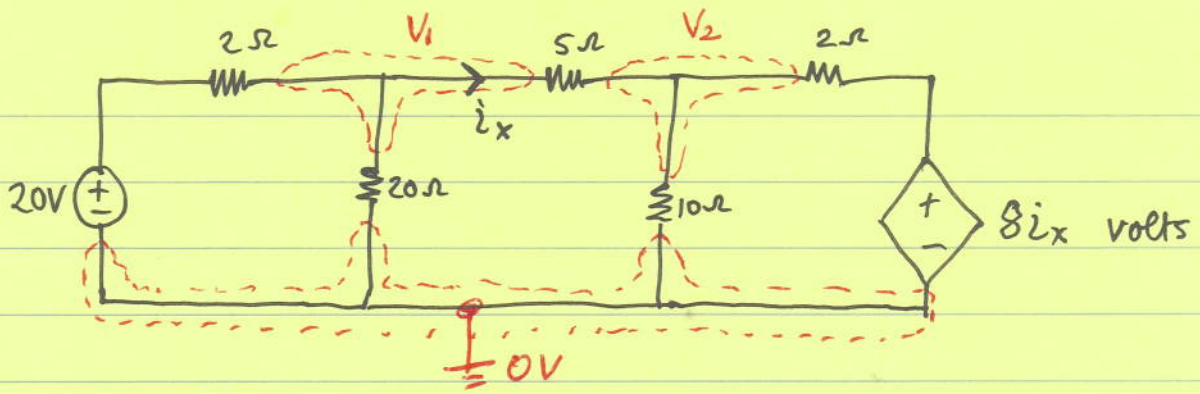 2Ω V₁ 5Ω V₂ 2Ω
iₓ
20V + − 20Ω 10Ω + − 8iₓ volts
0V